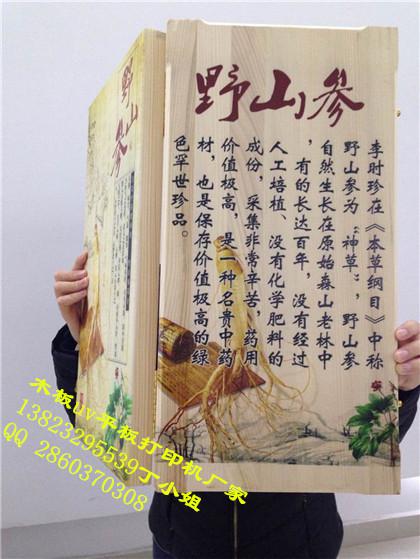 野山参
李时珍在《本草纲目》中称
野山参为“神草”，野山参
自然生长在原始森山老林中
，有的长达百年，没有经过
人工培植、没有化学肥料的
成份，采集非常辛苦，药用
价值极高，是一种名贵中药
材，也是保存价值极高的绿
色罕世珍品。
野山参
木板uv平板打印机厂家
13823295539丁小姐
QQ 2860370308